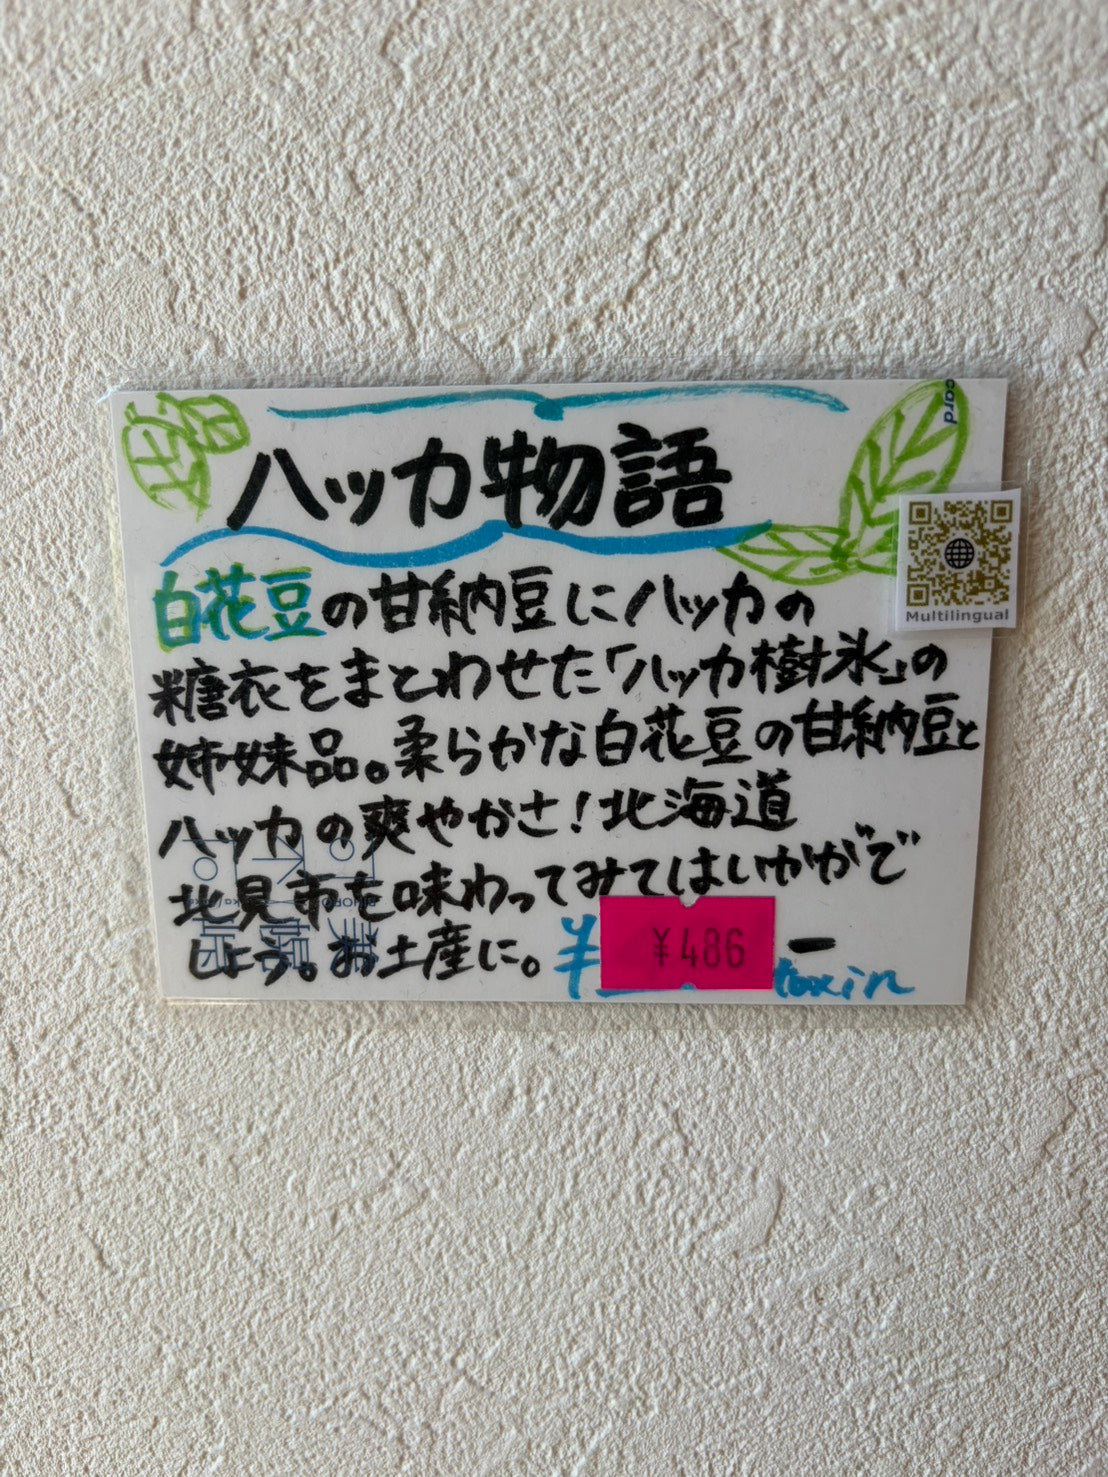 card
ハッカ物語
Multilingual
白花豆の甘納豆にハッカの
糖衣をまとわせた「ハッカ樹氷」の
姉妹品。柔らかな白花豆の甘納豆と
ハッカの爽やかさ!北海道
北見市を味わってみてはいかがで
しょう。お土産に。¥
¥486
—
taxin